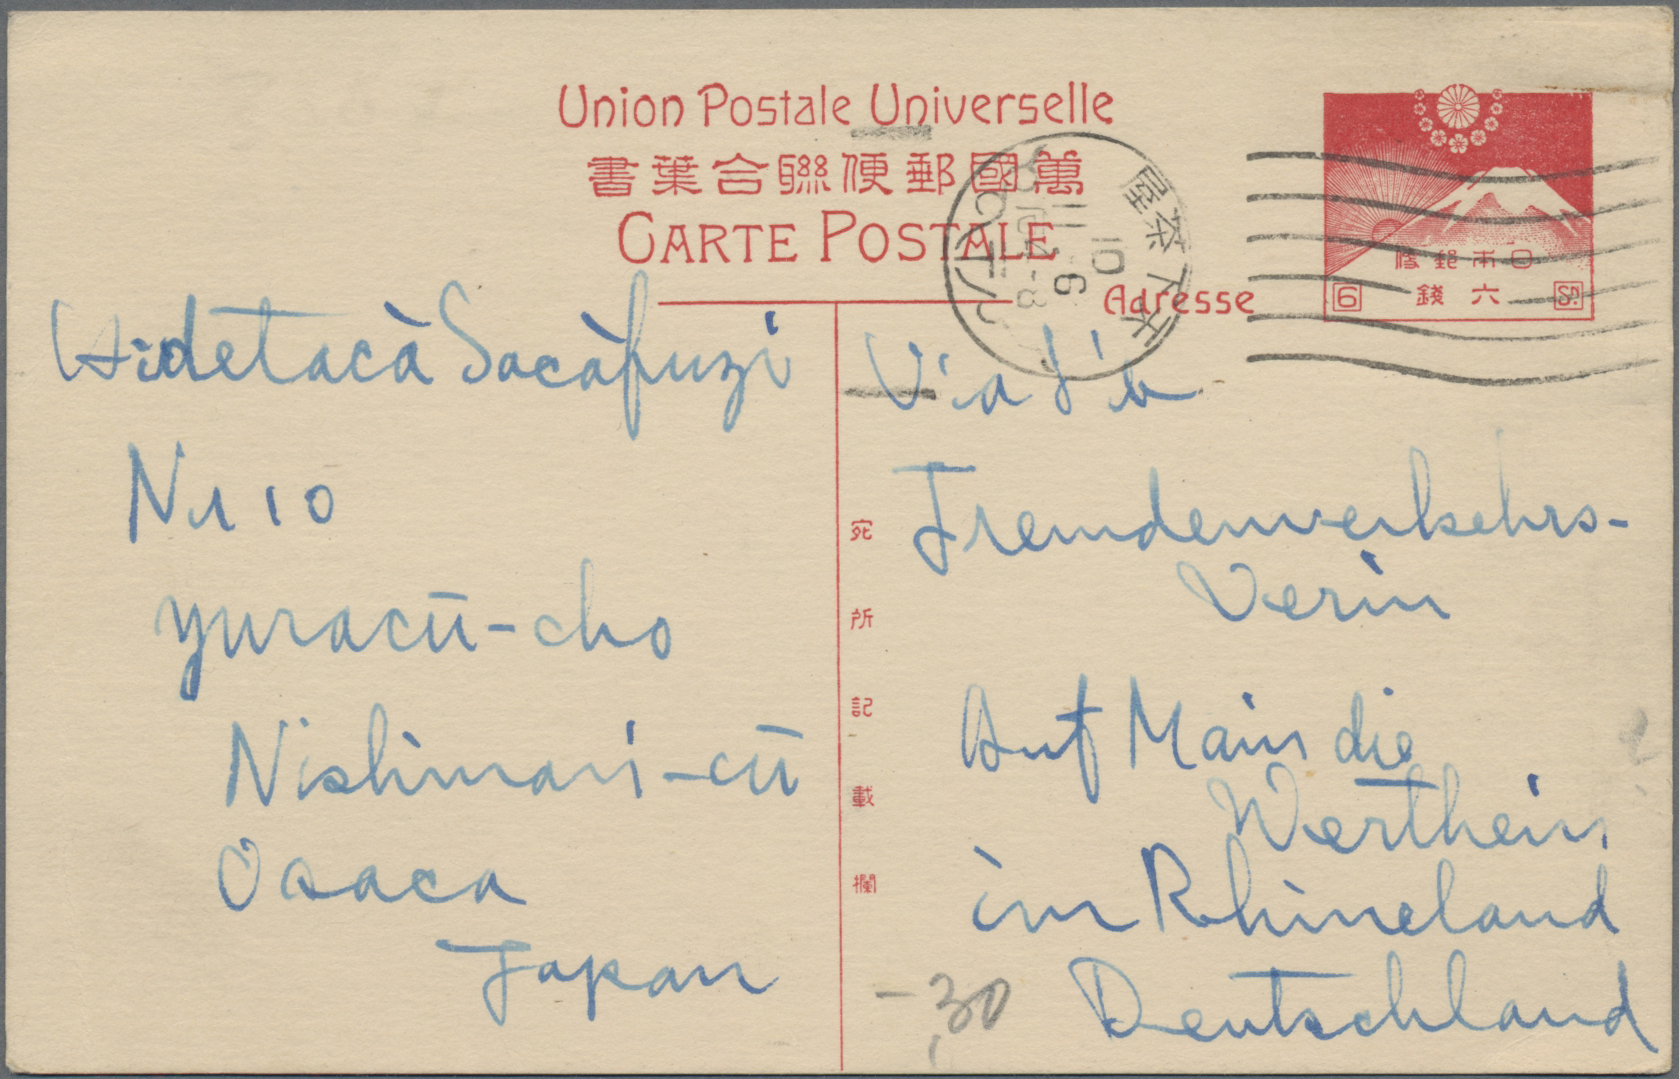 Union Postale Universelle
萬國郵便聯合葉書
CARTE POSTALE
Adresse
日本郵便
6 六錢 Sn.
天下茶屋
10
11 - 6
宛所記載欄
Hidetacà Sacàfuzi
Nr 10
yuracū-cho
Nishinari-cū
Osaca
Japan
Via Sib
Fremdenverkehrs-
Verin
Auf Main die
Werthein
im Rhineland
Deutschland
-,30